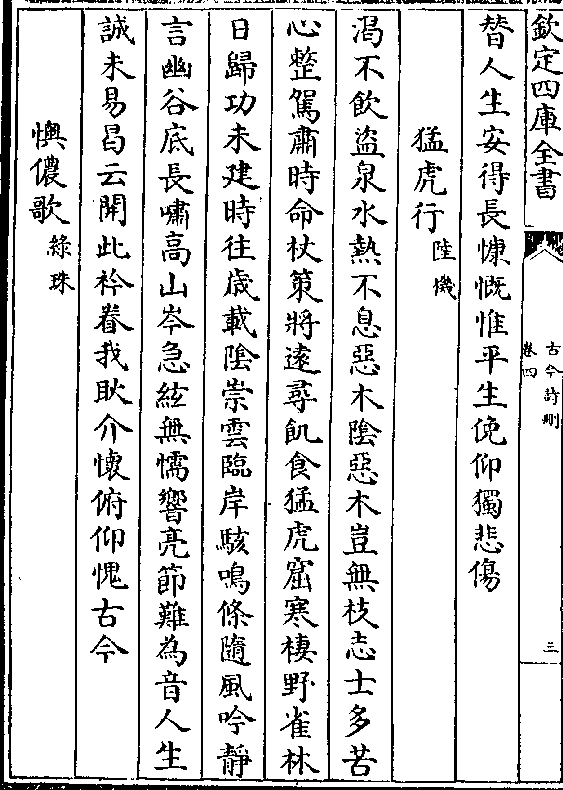 欽定四庫全書
古今詩刪
卷四
三
朁人生安得長慷慨惟平生俛仰獨悲傷
猛虎行 陸機
渴不飲盜泉水熱不息惡木陰惡木豈無枝志士多苦
心整駕肅時命杖策將遠尋飢食猛虎窟寒棲野雀林
日歸功未建時往歲載陰崇雲臨岸駭鳴條隨風吟靜
言幽谷底長嘯高山岑急絃無懦響亮節難為音人生
誠未易曷云開此衿眷我耿介懷俯仰愧古今
懊儂歌 綠珠